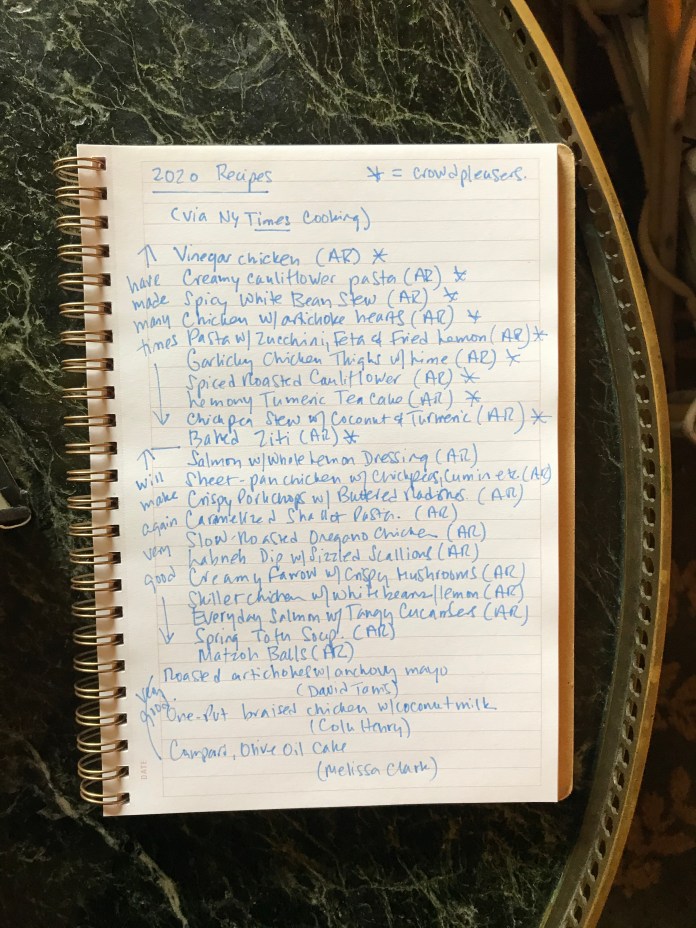 2020 Recipes * = crowdpleasers.
(via NY Times Cooking)
↑ Vinegar chicken (AR) *
have Creamy cauliflower pasta (AR) *
made Spicy White Bean Stew (AR) *
many Chicken w/ artichoke hearts (AR) *
times Pasta w/ Zucchini, Feta & Fried Lemon (AR) *
Garlicky Chicken Thighs w/ Lime (AR) *
Spiced Roasted Cauliflower (AR) *
Lemony Tumeric Tea Cake (AR) *
Chickpea Stew w/ Coconut & Turmeric (AR) *
Baked Ziti (AR) *
Salmon w/ Whole Lemon Dressing (AR)
will Sheet-pan chicken w/ Chickpeas, Cumin etc. (AR)
make Crispy Porkchops w/ Buttered Radishes (AR)
again Caramelized Shallot Pasta. (AR)
Slow-Roasted Oregano Chicken (AR)
very Labneh Dip w/ Sizzled Scallions (AR)
good Creamy Farrow w/ Crispy Mushrooms (AR)
Skillet chicken w/ white beans/lemon (AR)
Everyday Salmon w/ Tangy Cucumbers (AR)
Spring Tofu Soup. (AR)
Matzoh Balls (AR)
Roasted artichokes w/ anchovy mayo
very (David Tanis)
good One-Pot braised chicken w/ coconut milk
(Colu Henry)
Campari, Olive Oil Cake
(Melissa Clark)
DATE